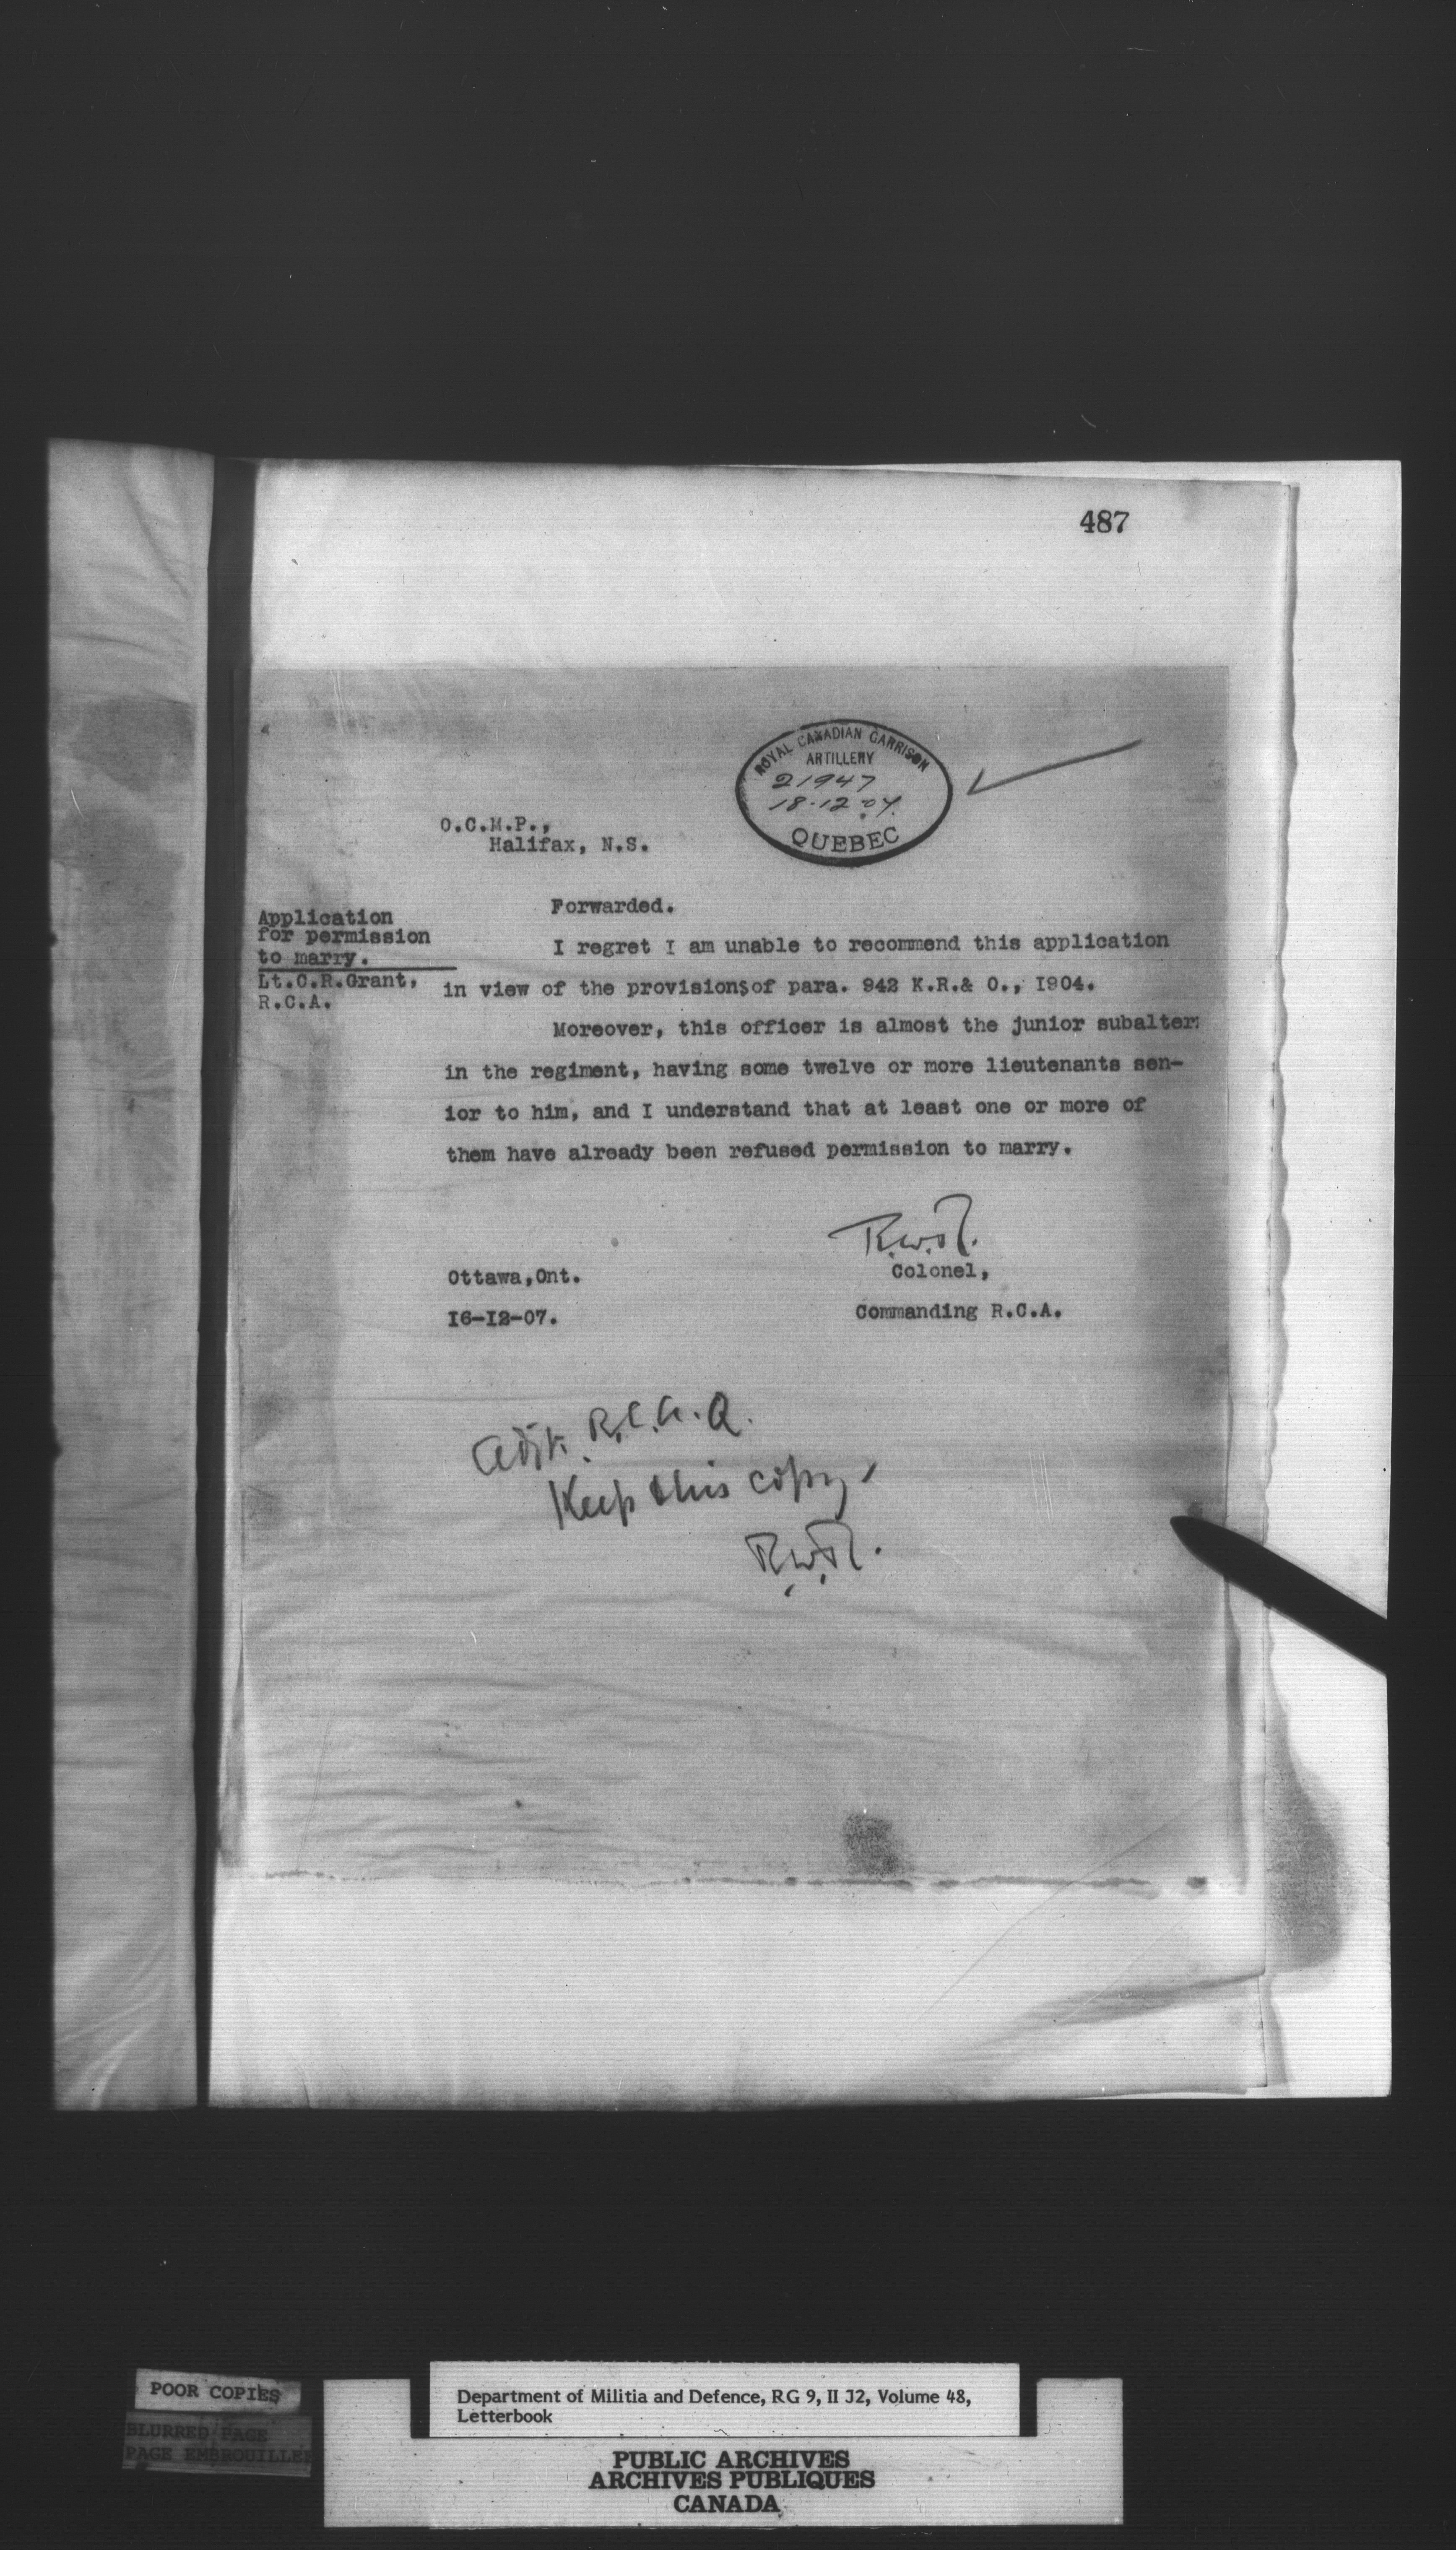 487
ROYAL CANADIAN GARRISON
ARTILLERY
21947
18·12·07.
QUEBEC
O.C.M.P.,
Halifax, N.S.
Forwarded.
Application
for permission
to marry.
Lt.C.R.Grant,
R.C.A.
I regret I am unable to recommend this application
in view of the provisions of para. 942 K.R.& O., I904.
Moreover, this officer is almost the junior subaltern
in the regiment, having some twelve or more lieutenants sen-
ior to him, and I understand that at least one or more of
them have already been refused permission to marry.
R.W.R.
Colonel,
Commanding R.C.A.
Ottawa,Ont.
I6-I2-07.
Adjt. R.C.A.Q.
Keep this copy.
R.W.R.
POOR COPIES
BLURRED PAGE
PAGE EMBROUILLEE
Department of Militia and Defence, RG 9, II J2, Volume 48,
Letterbook
PUBLIC ARCHIVES
ARCHIVES PUBLIQUES
CANADA